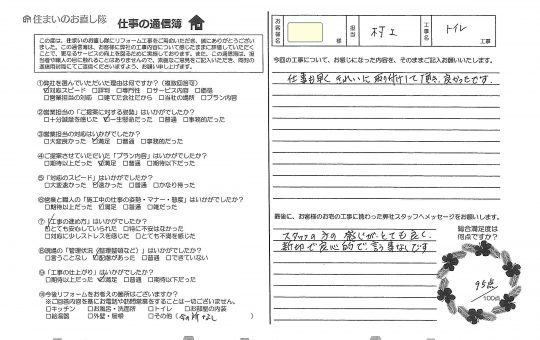 住まいのお直し隊 仕事の通信簿
この度は、住まいのお直し隊にリフォーム工事をご用命いただき、誠にありがとうござい
ました。この通信簿は、お客様に弊社の工事内容について感じたままに評価していただく
ことで、更なるサービスの向上を図るために実施しております。また、この通信簿は、担
①弊社を選んでいただいた理由は何ですか?(複数回答可)
☑対応スピード □評判 □専門性 □サービス内容 □価格
□営業担当の対応 □建てた会社だから □当社の場所 □プラン内容
②営業担当の「ご提案に対する姿勢」はいかがでしたか?
□十分誠意を感じた ☑一生懸命だった □普通 □事務的だった
③営業担当の対応はいかがでしたか?
□大変良かった ☑満足 □普通 □事務的だった
④ご提案させていただいた「プラン内容」はいかがでしたか?
□期待以上だった ☑満足 □普通 □期待以下だった
⑤「対応のスピード」はいかがでしたか?
□大変速かった ☑速かった □普通 □かなり待った
⑥営業と職人の「施工中の仕事の姿勢・マナー・態度」はいかがでしたか?
□期待以上だった ☑満足 □雑だった □普通
⑦「工事の進め方」はいかがでしたか?
☑とても安心していられた □特に不安はなかった
□対応に少しストレスを感じた □とても不満を感じた
⑧現場の「管理状況(整理整頓など)」はいかがでしたか?
□言うことなし ☑配慮があった □普通 □できていない
⑨「工事の仕上がり」はいかがでしたか?
□期待以上だった ☑満足 □普通 □期待以下だった
⑩今後リフォームをお考えの箇所はございますか?
※ご回答内容を基にお電話や訪問営業をすることは一切ございません。
□キッチン □お風呂・洗面所 □トイレ □お部屋の内装
□給湯器 □外壁・屋根 □その他(今の所なし)
お客様名 様 担当 村上 工事名 トイレ 工事
今回の工事について、お感じになった内容を、そのままご記入お願いいたします。
仕事も早く きれいに取り付けして頂き、良かったです。
最後に、お客様のお宅の工事に携わった弊社スタッフへメッセージをお願いします。
スタッフの方の感じがとても良く、
親切で良心的で、言う事なしです
総合満足度は
何点ですか?
95点
/100点